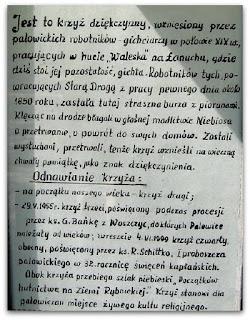 Jest to krzyż dziękczynny, wzniesiony przez
palowickich robotników - gichciarzy w połowie XIX w.,
pracujących w hucie „Waleska” na Łanuchu, gdzie
dziś stoi jej pozostałość, gichta. Robotników tych, po-
wracających Starą Drogą z pracy pewnego dnia około
1850 roku, zastała tutaj straszna burza z piorunami.
Klęcząc na drodze błagali w głośnej modlitwie Niebiosa
o przetrwanie, o powrót do swych domów. Zostali
wysłuchani, przetrwali, tenże krzyż wznieśli na wieczną
chwały pamiątkę, jako znak dziękczynienia.
Odnawianie krzyża:
- na początku naszego wieku - krzyż drugi;
- 29.V.1955r. krzyż trzeci, poświęcony podczas procesji
przez ks. G. Bańkę z Woszczyc, do których Palowice
należały od wieków; wreszcie 4.VI.1999 krzyż czwarty,
obecny, poświęcony przez ks. R. Schiffko, I proboszcza
palowickiego w 32. rocznicę święceń kapłańskich.
Obok krzyża przebiega szlak niebieski „Początków
hutnictwa na Ziemi Rybnickiej”. Krzyż stanowi dla
palowiczan miejsce żywego kultu religijnego.